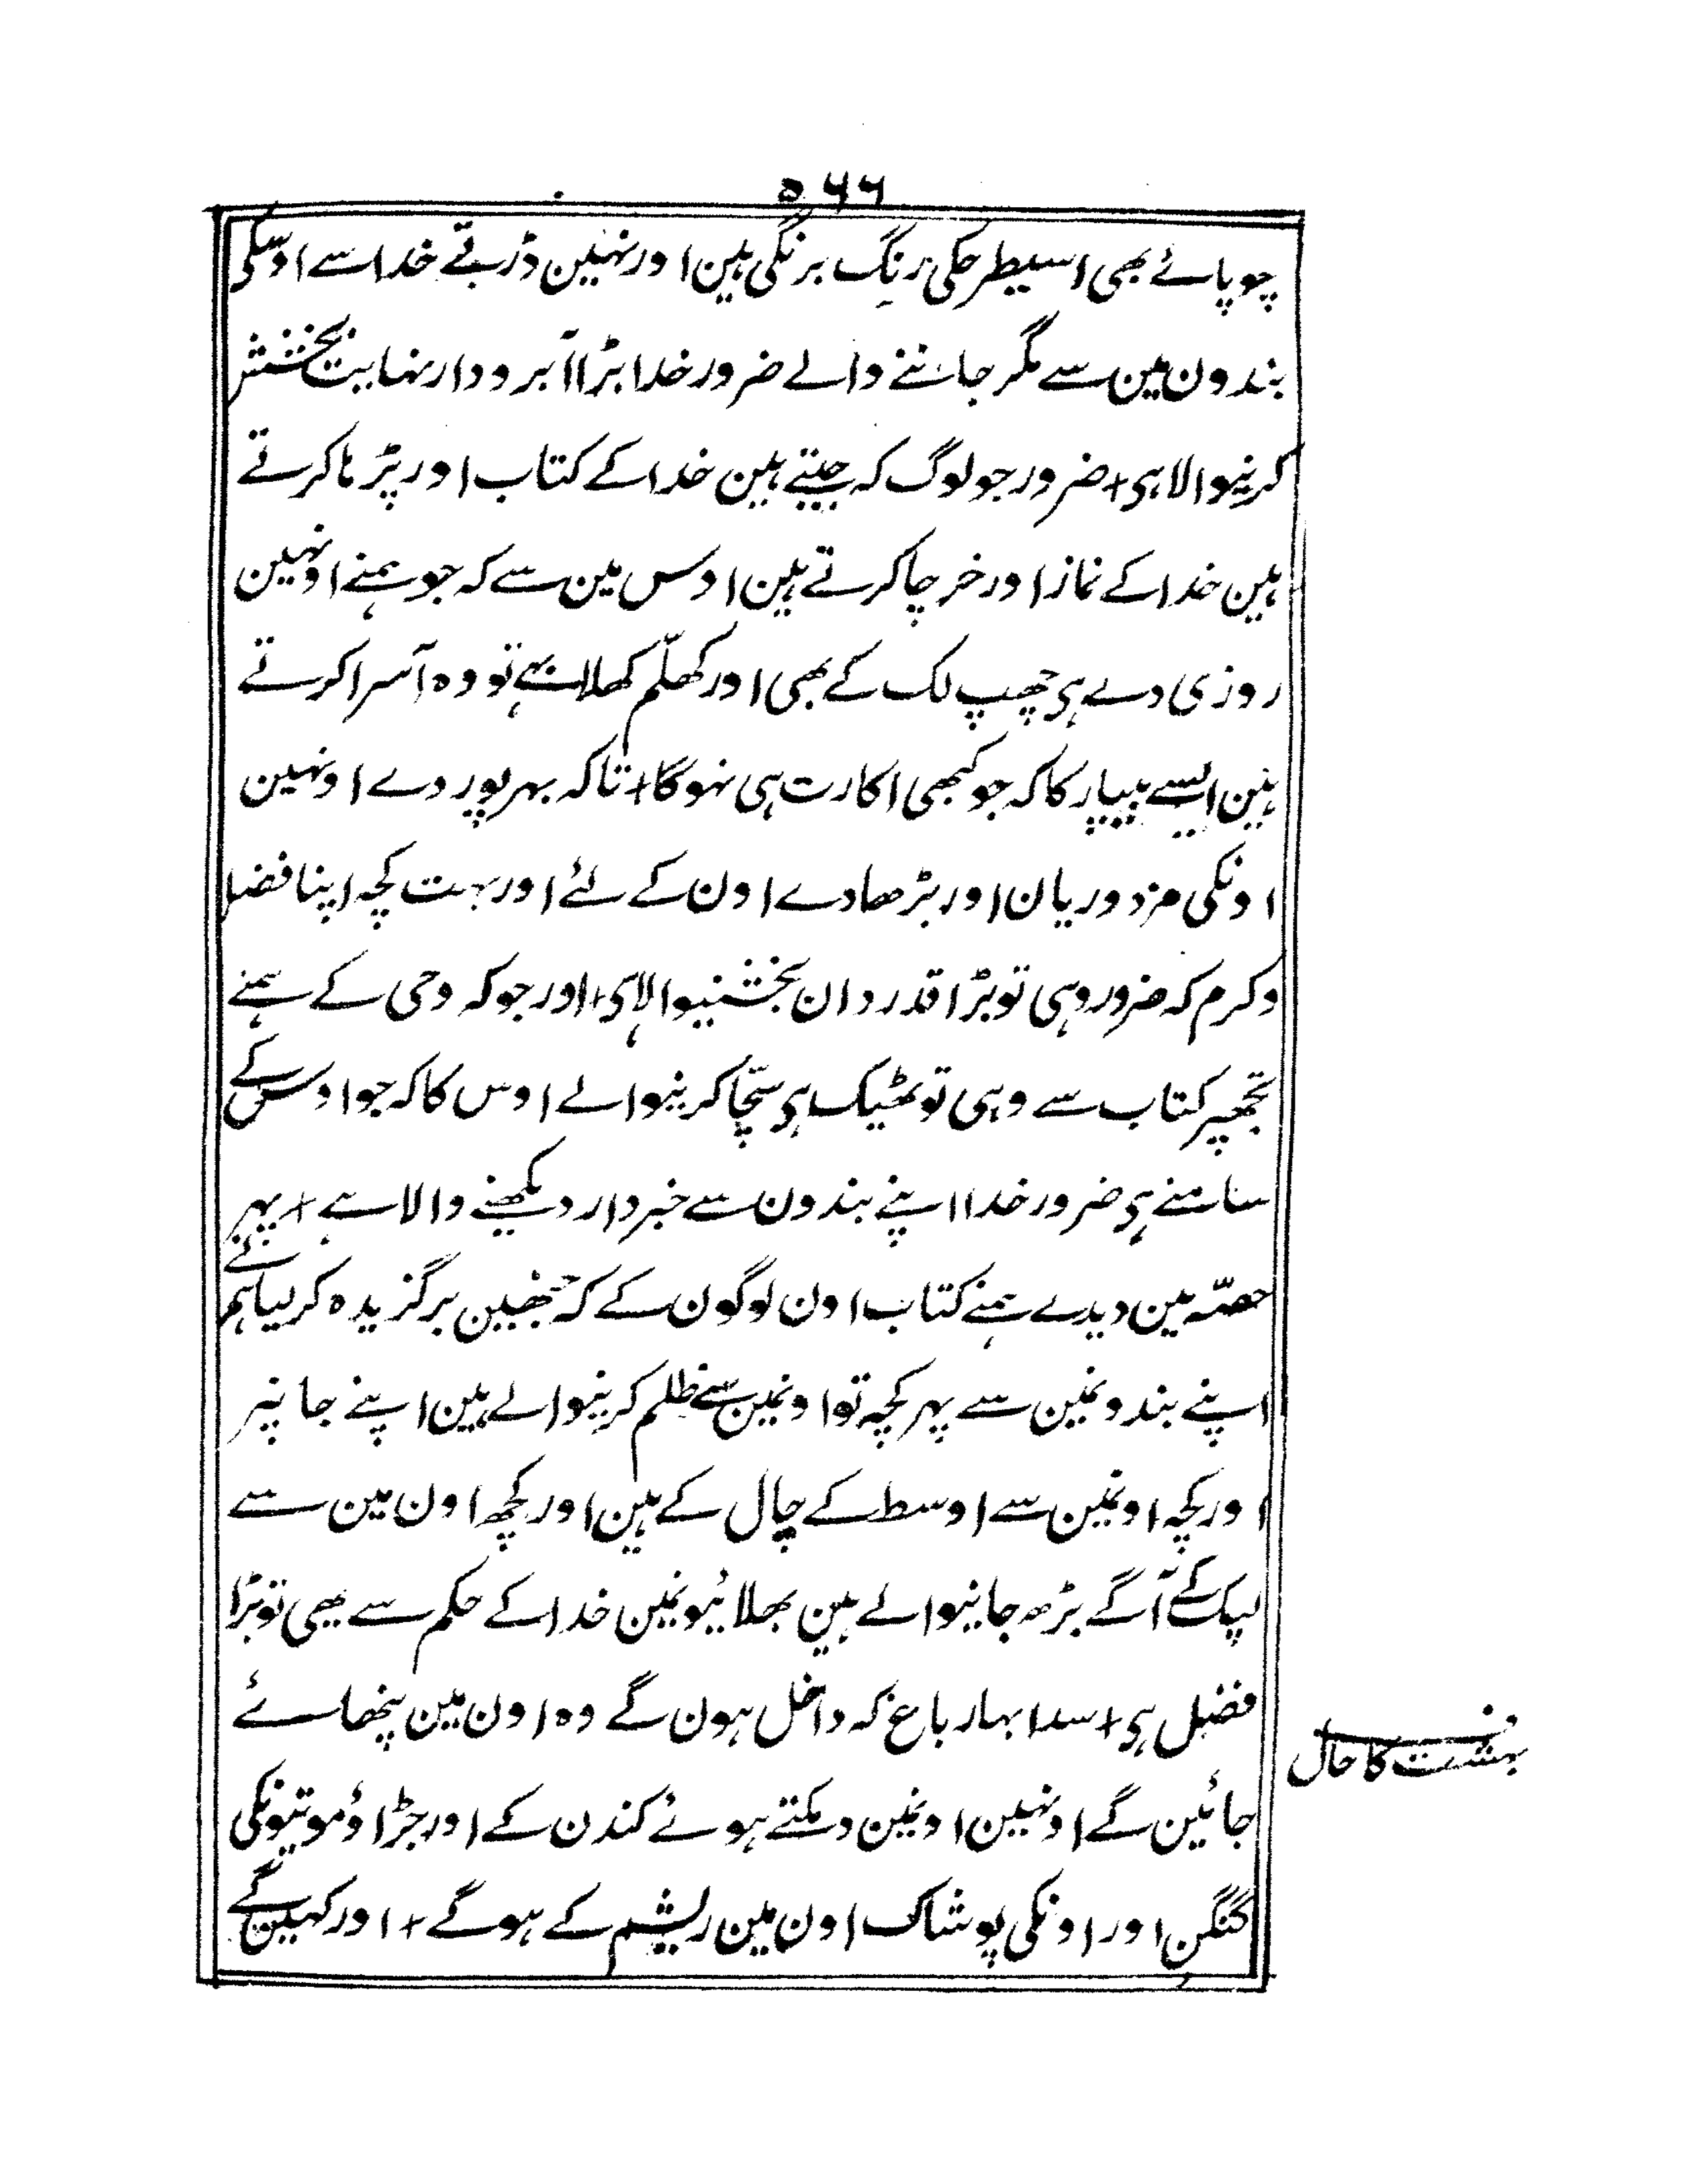 ۵۶۶
چوپائے بھی اسیطرحکی رنگ برنگی ہین اور نہین ڈرتے خدا سے اوسکی
بندون مین سے مگر جاننے والے ضرور خدا بڑا آبرودار نہایت بخشش
کرنیوالا ہی + ضرور جو لوگ کہ جپتے ہین خدا کے کتاب اور پڑہا کرتے
ہین خدا کے نماز اور خرچا کرتے ہین اوس مین سے کہ جو ہمنے اونہین
روزی دے ہی چھپ لک کے بھی اور کھلّم کھلا بہے تو وہ آسرا کرتے
ہین ایسے بیپار کا کہ جو کبھی اکارت ہی نہوگا + تاکہ بہرپور دے اونہین
اونکی مزدوریان اور بڑھادے اون کے لئے اور بہت کچہ اپنا فضل
وکرم کہ ضرور وہی تو بڑا قدردان بخشنیوالا ہی + اور جو کہ وحی کے ہمنے
تجھپر کتاب سے وہی تو ٹھیک ہی سچّا کرنیوالے اوس کا کہ جو اوس کے
سامنے ہی ضرور خدا اپنے بندون سے خبردار دیکھنے والا ہے + پہر
حصّہ مین دیدے ہمنے کتاب اون لوگون کے کہ جنھین برگزیدہ کر لیا ہم نے
اپنے بندونمین سے پہر کچہ تو اونمین سے ظلم کرنیوالے ہین اپنے جانپر
اور کچہ اونمین سے اوسط کے چال کے ہین اور کچھ اون مین سے
لپک کے آگے بڑھ جانیوالے ہین بھلائیونمین خدا کے حکم سے یھی تو بڑا
فضل ہی + سدا بہار باغ کہ داخل ہون گے وہ اون مین پنھائے
جائین گے اونہین اونمین دمکتے ہوئے کندن کے اور جڑاؤ موتیونکی
کنگن اور اونکی پوشاک اون مین ریشم کے ہوگے + اور کہین گے
ف
بہشت کا حال